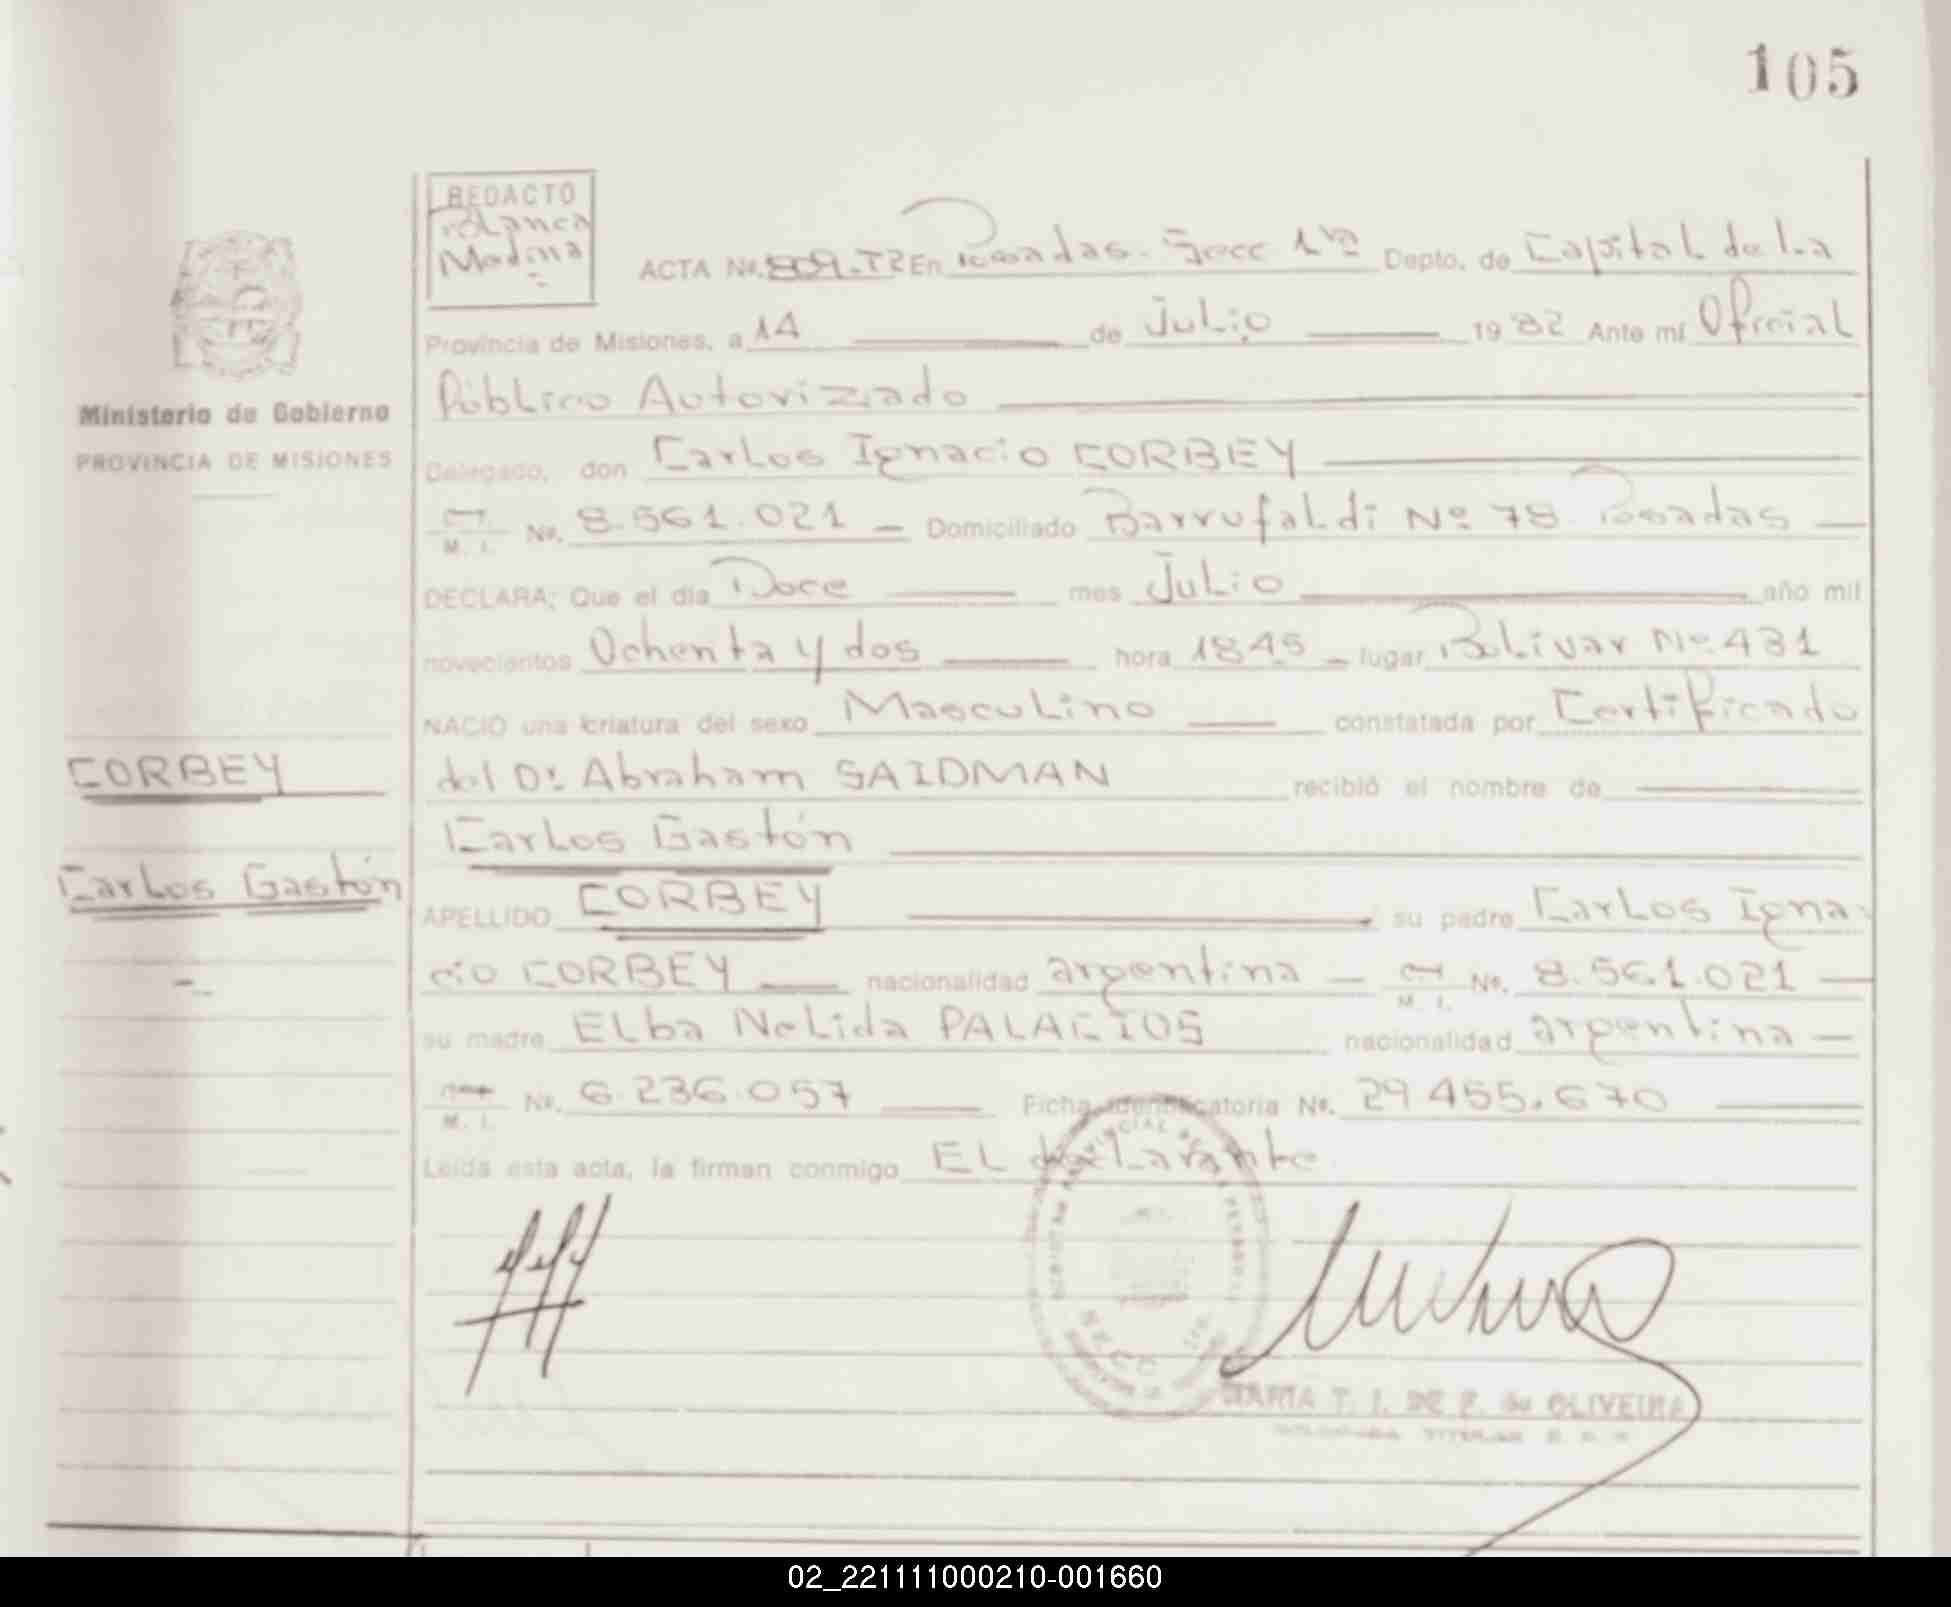 105
REDACTO
Blanca
Medina
ACTA No. 809-T2 En Posadas - Secc 1ra Depto. de Capital de la
Provincia de Misiones, a 14 de Julio 1982 Ante mí Oficial
Público Autorizado
Ministerio de Gobierno
PROVINCIA DE MISIONES
Delegado, don Carlos Ignacio CORBEY
M. I. No. 8.561.021 - Domiciliado Barrufaldi No 78 Posadas
DECLARA; Que el día Doce mes Julio año mil
novecientos Ochenta y dos hora 1845 - lugar Bolivar No 431
NACIO una criatura del sexo Masculino constatada por Certificado
CORBEY
del Dr. Abraham SAIDMAN recibió el nombre de
Carlos Gastón
Carlos Gastón
APELLIDO CORBEY su padre Carlos Igna-
cio CORBEY nacionalidad argentina - M. I. No. 8.561.021 -
su madre Elba Nelida PALACIOS nacionalidad argentina -
M. I. No. 6.236.057 Ficha Identificatoria No. 29.455.670
Leída esta acta, la firman conmigo El declarante
SECC 1ra.
MARIA T. I. DE F. de OLIVEIRA
TITULAR
02_221111000210-001660